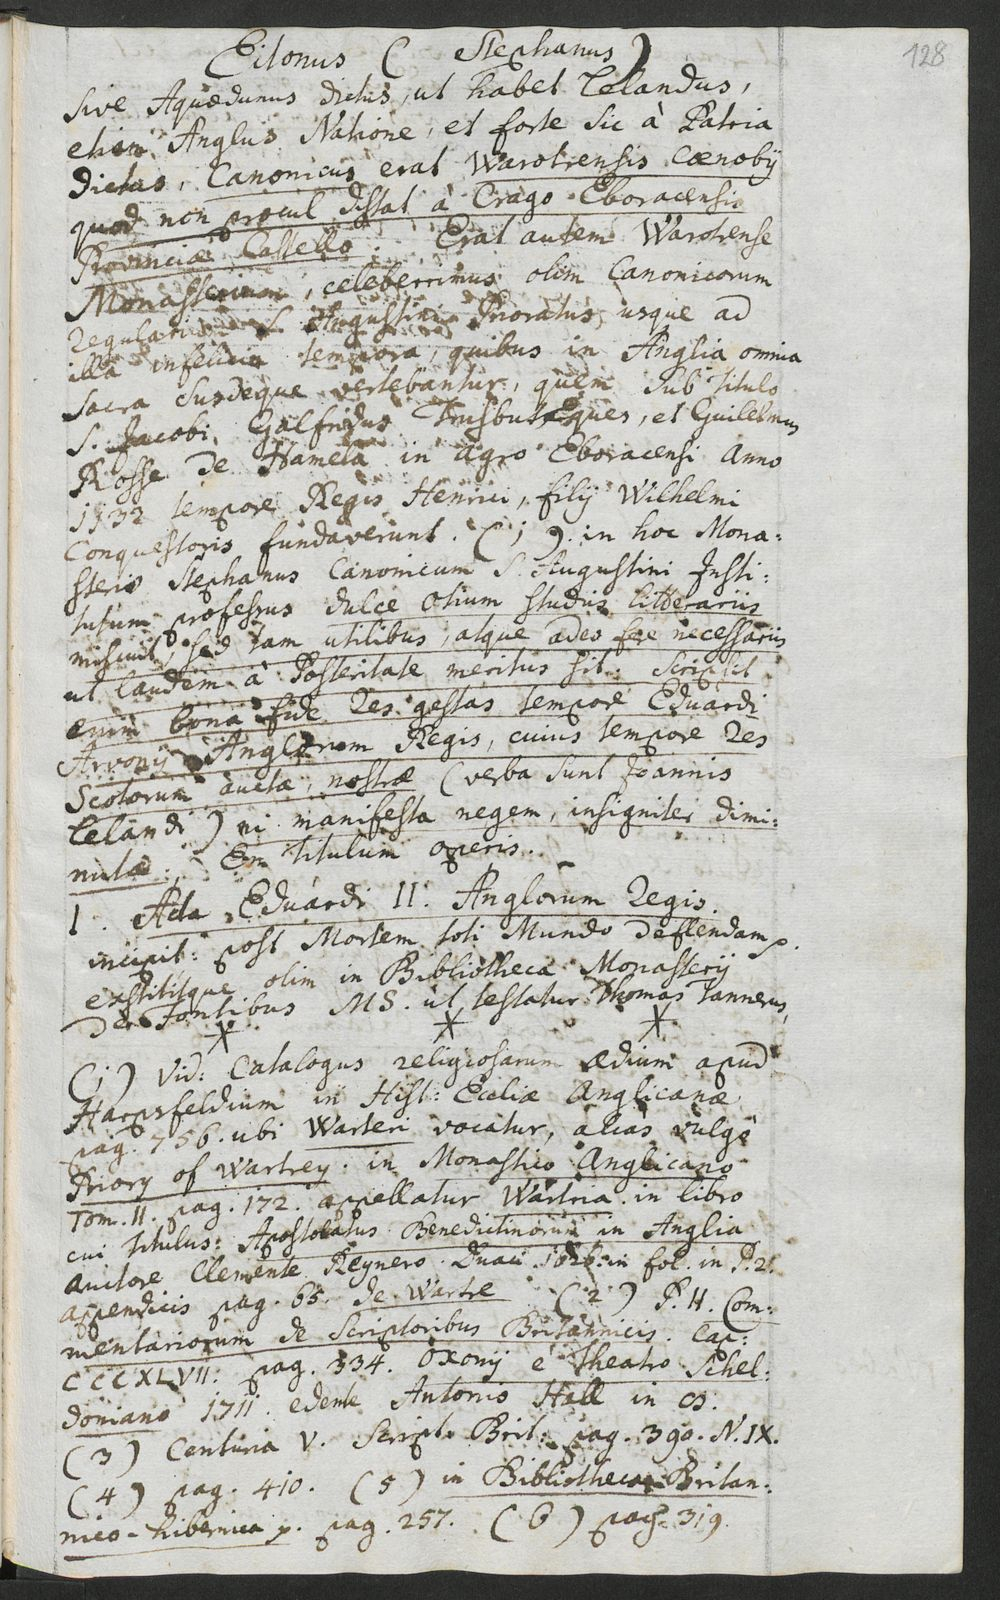 128
Eitonus ( Stephanus )
sive Aquædunus dictus, ut habet Lelandus,
etiam Anglus Natione, et forte sic à Patria
dictus, Canonicus erat Warotrensis Cœnobij
quod non procul distat à Crago Eboracensis
Provinciæ Castello. Erat autem Warotrense
Monasterium, celeberrimus olim Canonicorum
Regularium S. Augustini Prioratus, usque ad
illa infelicia tempora, quibus in Anglia omnia
sacra susdeque vertebantur, quem sub Titulo
S. Jacobi, Galfridus Trusbut Eques, et Guilelmus
Rosse de Hamela in agro Eboracensi Anno
1132 tempore Regis Henrici, filij Wilhelmi
Conquestoris fundaverunt. (1). in hoc Mona:
sterio Stephanus Canonicum S. Augustini Insti:
tutum professus dulce Otium studiis litterariis
miscuit, sed tam utilibus, atque adeo fere necessariis
ut laudem à Posteritate meritus sit. Scripsit
enim bona fide Res gestas tempore Eduardi
Arvonij Anglorum Regis, cuius tempore Res
Scotorum auctæ, nostræ (verba sunt Joannis
Lelandi) ni manifesta negem, insigniter dimi:
nutæ. En titulum operis.
I. Acta Eduardi II. Anglorum Regis.
incipit: post Mortem toti Mundo deflendam p.
exstititque olim in Bibliotheca Monasterij
de Fontibus MS. ut testatur Thomas Tannerus,
* * *
(1) Vid: Catalogus religiosarum ædium apud
Harpsfeldium in Hist: Eccliæ Anglicanæ
pag. 756. ubi Warteri vocatur, aliàs vulgò
Priory of Wartrey. in Monastico Anglicano
Tom. II. pag. 172. appellatur Wartria. in libro
cui titulus: Apostolatus Benedictinorum in Anglia
auctore Clemente Reynero Duaci 1626. in fol. in P. 2.
appendicis pag. 65. de Wartre (2) P. II. Com:
mentariorum de Scriptoribus Britannicis. Cap:
CCCXLVII. pag. 334. Oxonij è Theatro Schel:
doniano 1711. edente Antonio Hall in 8.
(3) Centuria V. Script. Brit: pag. 390. N. IX.
(4) pag. 410. (5) in Bibliotheca Britan:
nico-hibernica p. pag. 257. (6) pag. 319.